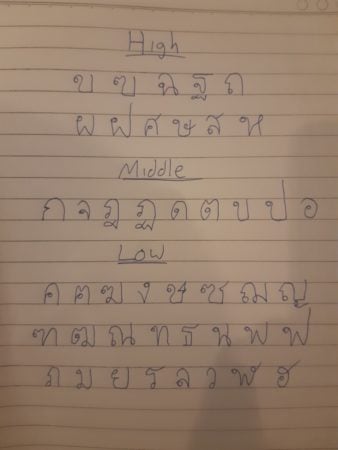 High
ข ฃ ฉ ฐ ถ
ผ ฝ ศ ษ ส ห
Middle
ก จ ฎ ฏ ด ต บ ป อ
Low
ค ฅ ฆ ง ช ซ ฌ ญ
ฑ ฒ ณ ท ธ น พ ฟ
ภ ม ย ร ล ว ฬ ฮ